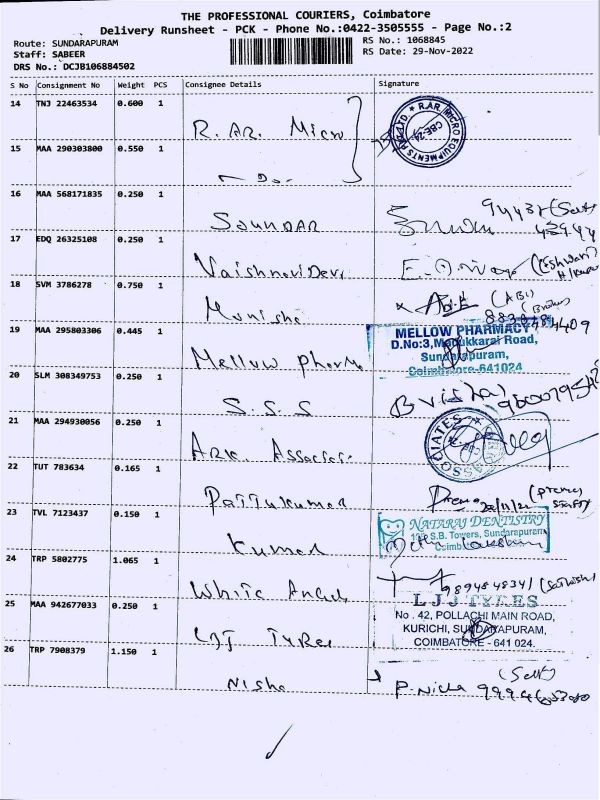 THE PROFESSIONAL COURIERS, Coimbatore
Delivery Runsheet - PCK - Phone No.:0422-3505555 - Page No.:2
Route: SUNDARAPURAM
RS No.: 1068845
Staff: SABEER
RS Date: 29-Nov-2022
DRS No.: DCJB106884502
S No Consignment No Weight PCS Consignee Details Signature
14 TNJ 22463534 0.600 1
R. AR. Micro
R.AR. MICRO EQUIPMENTS CBE-24
15 MAA 290303800 0.550 1
- Do -
16 MAA 568171835 0.250 1
SOUNDAR
17 EDQ 26325108 0.250 1
Vaishnavi Devi
18 SVM 3786278 0.750 1
Monisha
(ABI)
19 MAA 295803306 0.445 1
Mellow pharma
MELLOW PHARMACY
D.No:3, Madukkarai Road,
Sundarapuram,
Coimbatore-641024
20 SLM 308349753 0.250 1
S. S. S
B vishal
21 MAA 294930056 0.250 1
ASSOCIATES
22 TUT 783634 0.165 1
Pattukumar
23 TVL 7123437 0.150 1
Kumar
NATARAJ DENTISTRY
S.B. Towers, Sundarapuram
24 TRP 5802775 1.065 1
White Angel
25 MAA 942677033 0.250 1
LJJ Tyres
LJJ TYRES
No. 42, POLLACHI MAIN ROAD,
KURICHI, SUNDARAPURAM,
COIMBATORE - 641 024.
26 TRP 7908379 1.150 1
Nisha
(Self)
P. Nisha